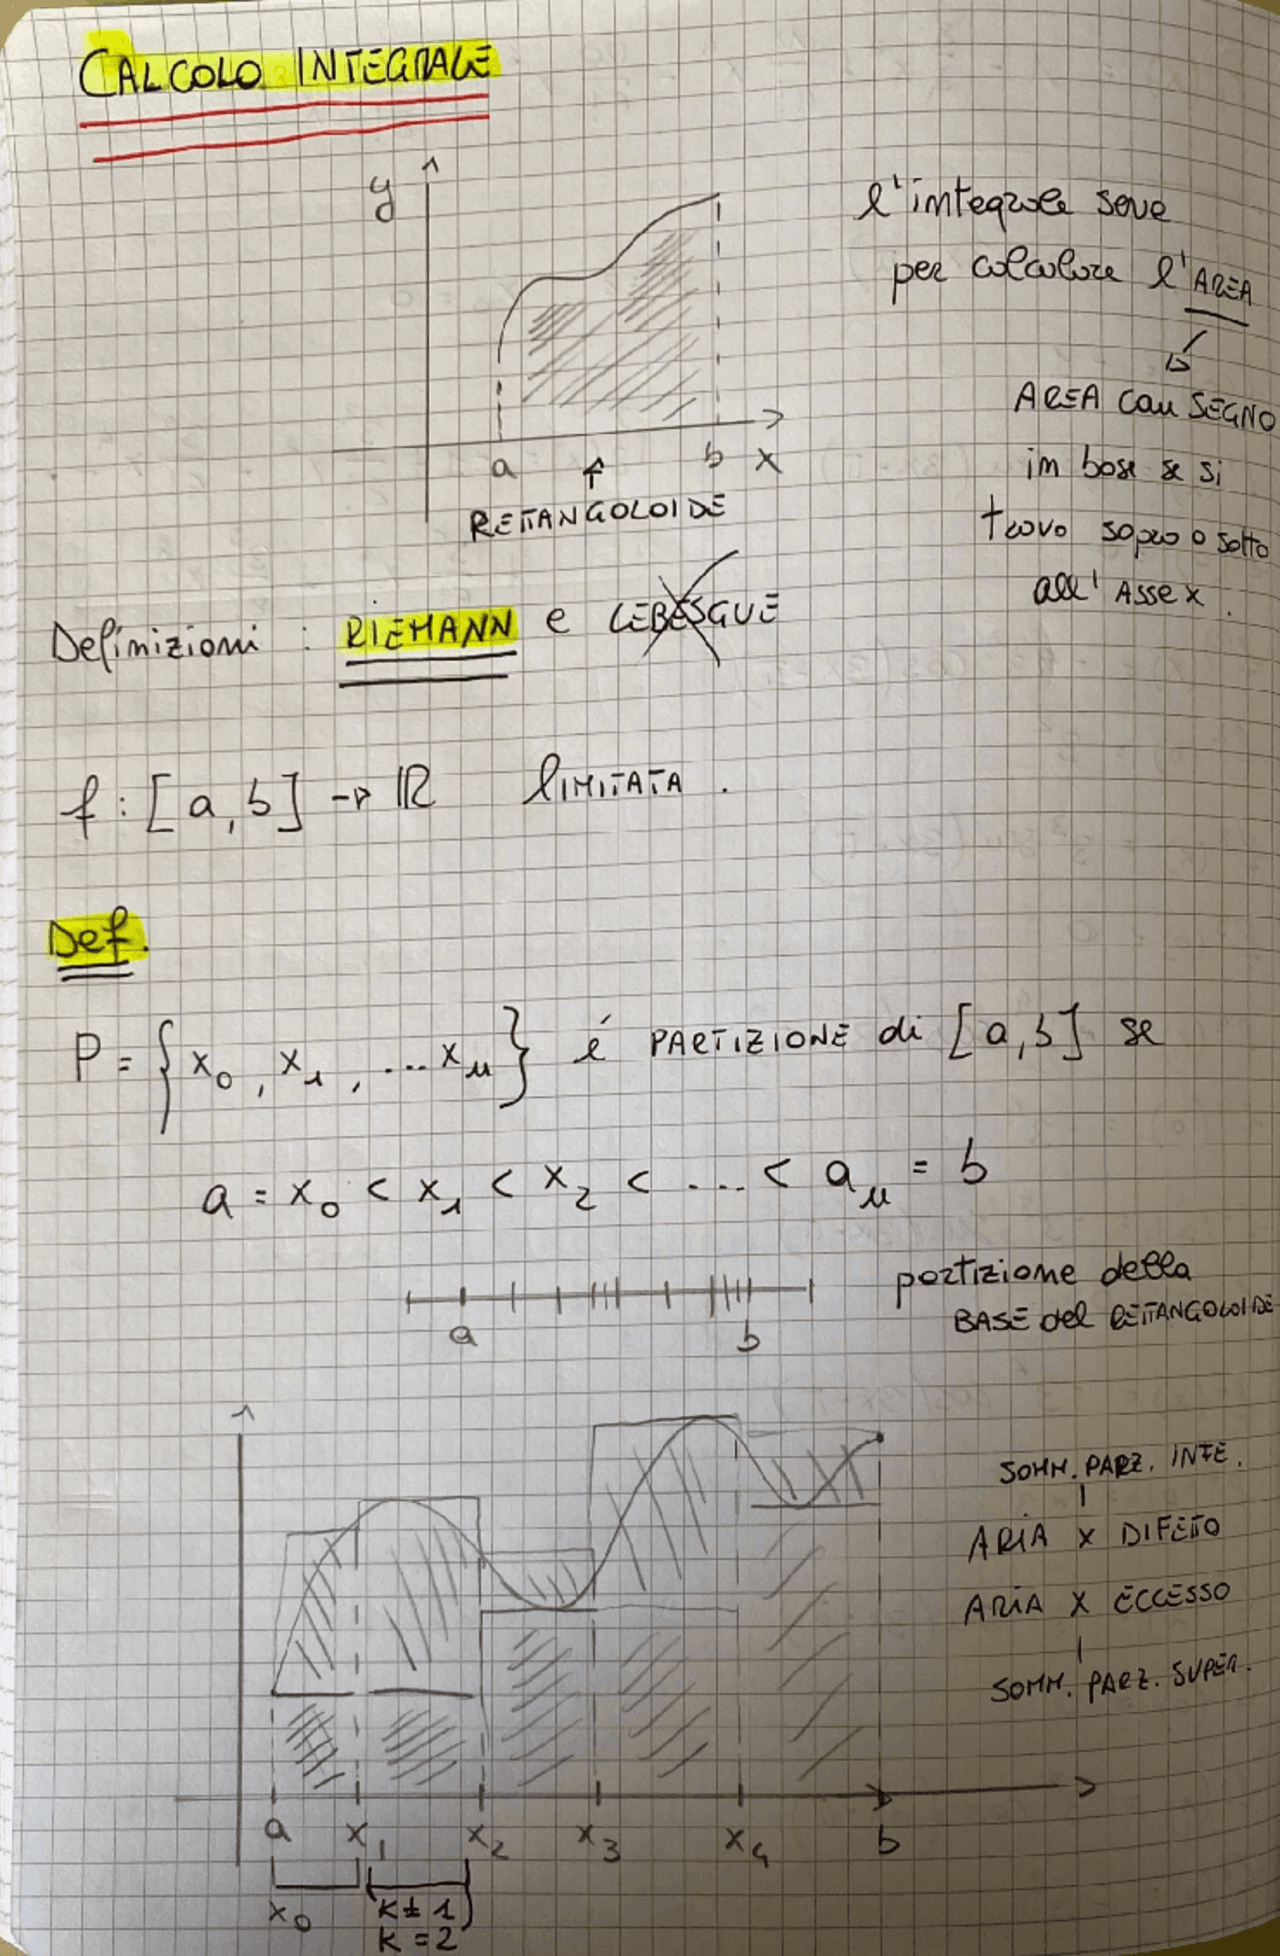 CALCOLO INTEGRALE
y
l'integrale serve
per calcolare l'AREA
AREA con SEGNO
in base se si
trova sopra o sotto
all' Asse x.
a b x
RETTANGOLOIDE
Definizioni : RIEMANN e LEBESGUE
f : [a, b] → ℝ LIMITATA.
Def.
P = {x₀, x₁, ... xₙ} é PARTIZIONE di [a, b] se
a = x₀ < x₁ < x₂ < ... < aₙ = b
a b
partizione della
BASE del RETTANGOLOIDE
SOMM. PARZ. INFE.
ARIA x DIFETTO
ARIA x ECCESSO
SOMM. PARZ. SUPER.
a x₁ x₂ x₃ x₄ b
x₀
K = 1
K = 2